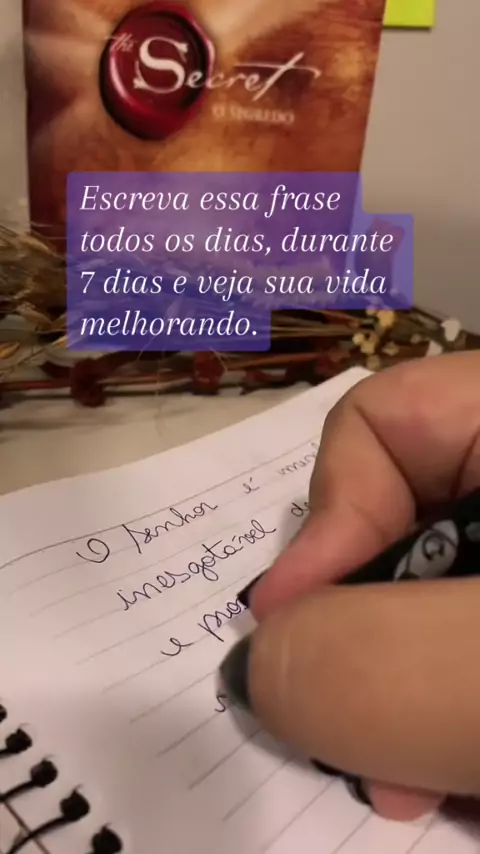 the Secret
O SEGREDO
Escreva essa frase
todos os dias, durante
7 dias e veja sua vida
melhorando.
O Senhor é
inesgotável
e